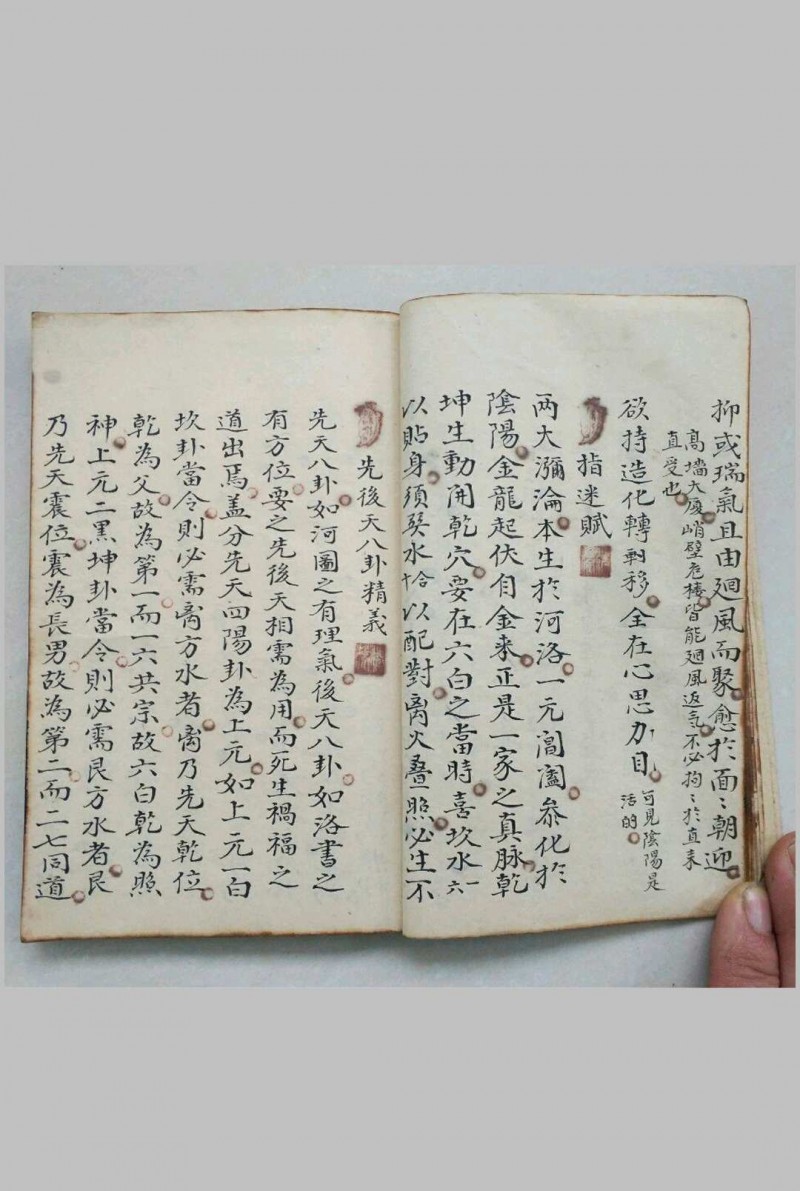 抑或瑞氣且由迴風而聚愈於面〻朝迎
高墻大厦峭壁危樓皆能迴風返氣不必拘〻於直来
直受也
欲持造化轉移全在心思力目可見陰陽是
活的
指迷賦
两大瀰淪本生於河洛一元闔闢叅化於
陰陽金龍起伏自金来正是一家之真脉乾
坤生動開乾穴要在六白之當時喜坎水一六
以貼身須癸水合十以配對离火叠照必生不
先後天八卦精義
先天八卦如河圖之有理氣後天八卦如洛書之
有方位要之先後天相需為用而死生禍福之
道出焉盖分先天四陽卦為上元如上元一白
坎卦當令則必需离方水者离乃先天乾位
乾為父故為第一而一六共宗故六白乾為照
神上元二黑坤卦當令則必需艮方水者艮
乃先天震位震為長男故為第二而二七同道